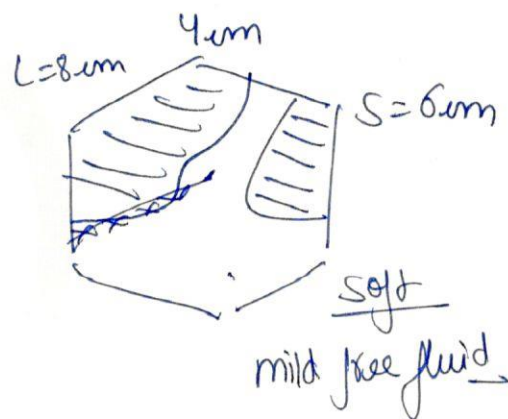 4cm
L=8cm
S=6cm
soft
mild free fluid